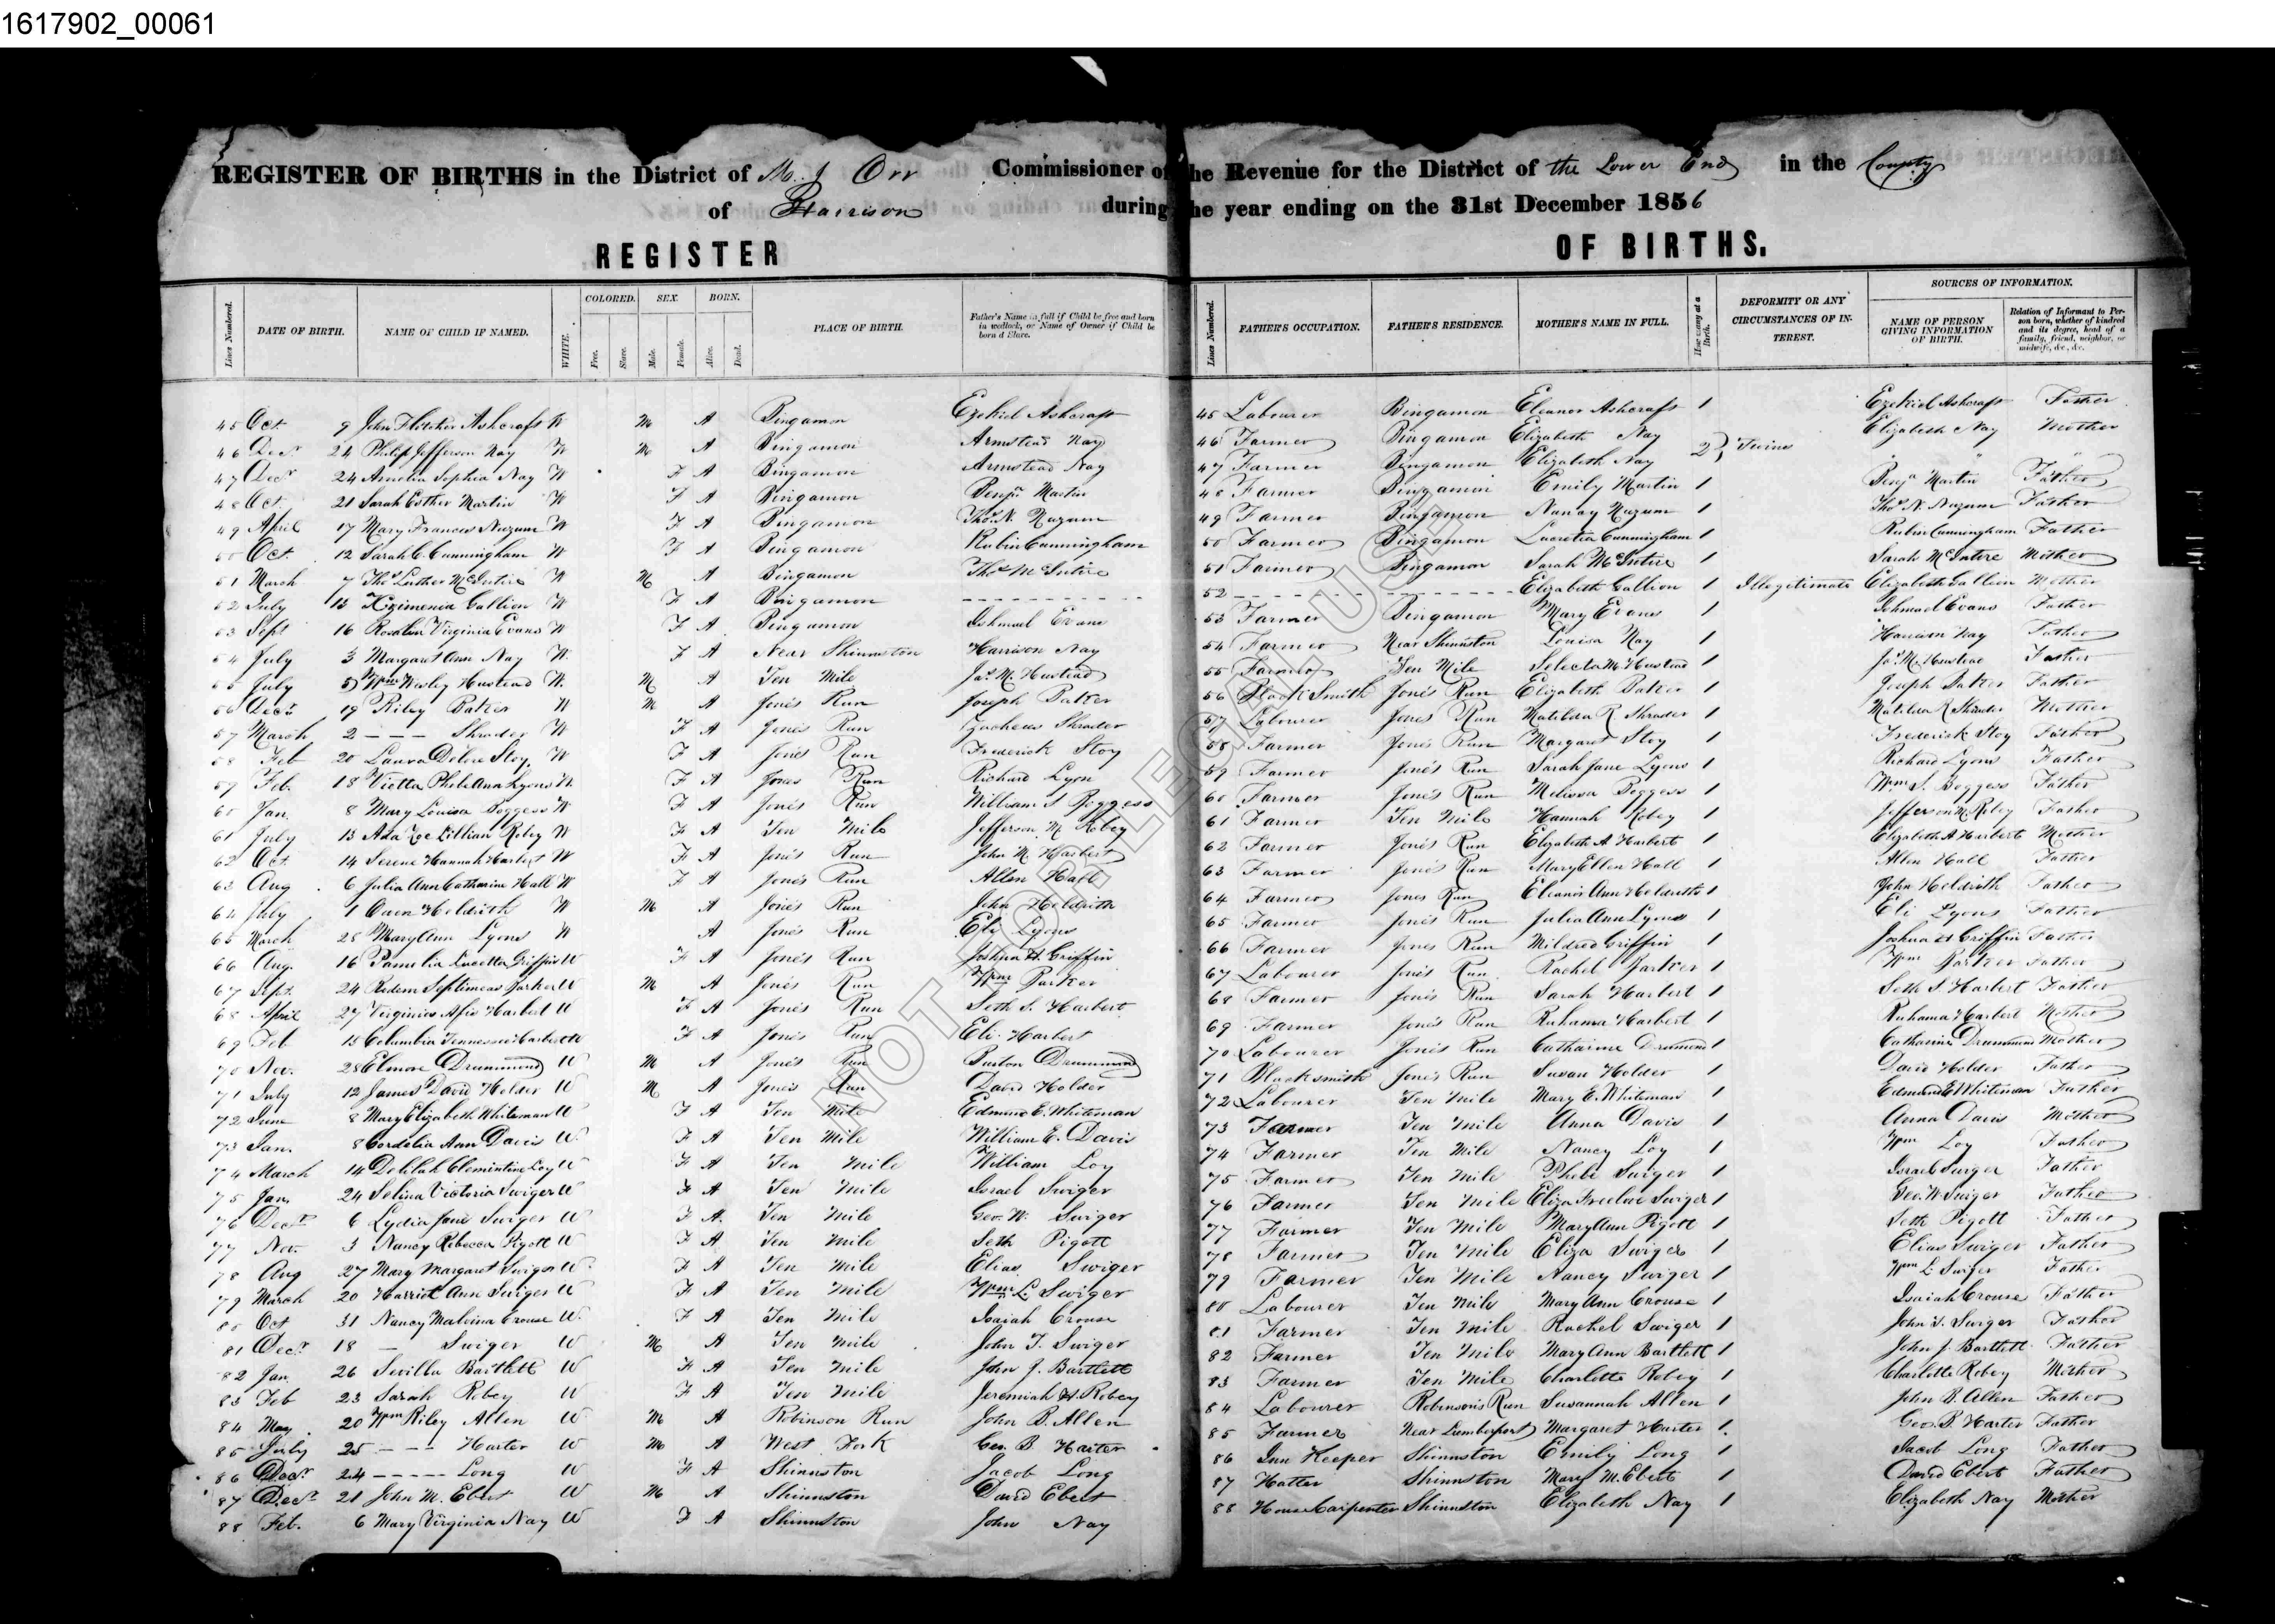 1617902_00061
REGISTER OF BIRTHS in the District of M. J Orr Commissioner of the Revenue for the District of the Lower End in the County
of Harrison during the year ending on the 31st December 1856
REGISTER OF BIRTHS.
Lines Numbered. DATE OF BIRTH. NAME OF CHILD IF NAMED. WHITE. COLORED. Free. Slave. SEX. Male. Female. BORN. Alive. Dead. PLACE OF BIRTH. Father's Name in full if Child be free and born in wedlock, or Name of Owner if Child be born a Slave. Lines Numbered. FATHER'S OCCUPATION. FATHER'S RESIDENCE. MOTHER'S NAME IN FULL. How many at a Birth. DEFORMITY OR ANY CIRCUMSTANCES OF INTEREST. SOURCES OF INFORMATION. NAME OF PERSON GIVING INFORMATION OF BIRTH. Relation of Informant to Person born, whether of kindred and its degree, head of a family, friend, neighbor, or midwife, &c., &c.
45 Oct. 9 John Fletcher Ashcraft W M A Bingamon Ezekiel Ashcraft 45 Labourer Bingamon Eleanor Ashcraft 1 Ezekiel Ashcraft Father
46 Decr 24 Philip Jefferson Nay W M A Bingamon Armstead Nay 46 Farmer Bingamon Elizabeth Nay 2 Twins Elizabeth Nay Mother
47 Decr 24 Amelia Sophia Nay W F A Bingamon Armstead Nay 47 Farmer Bingamon Elizabeth Nay " "
48 Oct. 21 Sarah Esther Martin W F A Bingamon Benjn Martin 48 Farmer Bingamon Emily Martin 1 Benjn Martin Father
49 April 17 Mary Frances Nuzum W F A Bingamon Thos. N. Nuzum 49 Farmer Bingamon Nancy Nuzum 1 Thos N. Nuzum Father
50 Oct. 12 Sarah C. Cunningham W F A Bingamon Rubin Cunningham 50 Farmer Bingamon Lucretia Cunningham 1 Rubin Cunningham Father
51 March 7 Thos Luther McIntire W M A Bingamon Thos McIntire 51 Farmer Bingamon Sarah McIntire 1 Sarah McIntire Mother
52 July 13 Gallion W F A Bingamon - - - - - - - - 52 - - - - - - - - Elizabeth Gallion 1 Illegitimate Elizabeth Gallion Mother
53 Sept 16 Virginia Evans W F A Bingamon Ishmael Evans 53 Farmer Bingamon Mary Evans 1 Ishmael Evans Father
54 July 3 Margaret Ann Nay W F A Near Shinnston Harrison Nay 54 Farmer Near Shinnston Louisa Nay 1 Harrison Nay Father
55 July 5 Wm Wesley Hustead W M A Ten Mile Jas. M. Hustead 55 Farmer Ten Mile Selecta M. Hustead 1 Jas. M. Hustead Father
56 Decr 19 Riley Baker W M A Jones Run Joseph Baker 56 Black Smith Jones Run Elizabeth Baker 1 Joseph Baker Father
57 March 2 - - - Shrader W F A Jones Run Zacheus Shrader 57 Labourer Jones Run Matilda R Shrader 1 Matilda R Shrader Mother
58 Feb 20 Laura Stoy W F A Jones Run Frederick Stoy 58 Farmer Jones Run Margaret Stoy 1 Frederick Stoy Father
59 Feb. 18 Phebe Ann Lyons W F A Jones Run Richard Lyon 59 Farmer Jones Run Sarah Jane Lyons 1 Richard Lyons Father
60 Jan. 8 Mary Louisa Boggess W F A Jones Run William S Boggess 60 Farmer Jones Run Melissa Boggess 1 Wm S. Boggess Father
61 July 13 Ada Zoe Lillian Robey W F A Ten Mile Jefferson M Robey 61 Farmer Ten Mile Hannah Robey 1 Jefferson M. Robey Father
62 Oct. 14 Serene Hannah Harbert W F A Jones Run John M. Harbert 62 Farmer Jones Run Elizabeth A Harbert 1 Elizabeth A Harbert Mother
63 Aug. 6 Julia Ann Catharine Hall W F A Jones Run Allen Hall 63 Farmer Jones Run Mary Ellen Hall 1 Allen Hall Father
64 July 1 Owen Heldrith W M A Jones Run John Heldrith 64 Farmer Jones Run Eleanor Ann Heldrith 1 John Heldrith Father
65 March 28 Mary Ann Lyons W A Jones Run Eli Lyons 65 Farmer Jones Run Julia Ann Lyons 1 Eli Lyons Father
66 Aug. 16 Pamelia Lucetta Griffin W F A Jones Run Joshua H. Griffin 66 Farmer Jones Run Mildred Griffin 1 Joshua H Griffin Father
67 Sept. 24 Septimeas Parker W M A Jones Run Wm Parker 67 Labourer Jones Run Rachel Parker 1 Wm Parker Father
68 April 27 Harbert W F A Jones Run Seth S. Harbert 68 Farmer Jones Run Sarah Harbert 1 Seth S Harbert Father
69 Feb 15 Columbia Tennessee Harbert W F A Jones Run Eli Harbert 69 Farmer Jones Run Ruhama Harbert 1 Ruhama Harbert Mother
70 Nov. 28 Elmore Drummond W M A Jones Run Drummond 70 Labourer Jones Run Catharine Drumond 1 Catharine Drummond Mother
71 July 12 James David Holder W M A Jones Run David Holder 71 Blacksmith Jones Run Susan Holder 1 David Holder Father
72 June 8 Mary Elizabeth Whiteman W F A Ten Mile Edmund E. Whiteman 72 Labourer Ten Mile Mary E. Whiteman 1 Edmund E Whiteman Father
73 Jan. 8 Cordelia Ann Davis W F A Ten Mile William E. Davis 73 Farmer Ten Mile Anna Davis 1 Anna Davis Mother
74 March 14 Delilah Clementine Loy W F A Ten Mile William Loy 74 Farmer Ten Mile Nancy Loy 1 Wm Loy Father
75 Jan. 24 Selina Victoria Swiger W F A Ten Mile Israel Swiger 75 Farmer Ten Mile Phebe Swiger 1 Israel Swiger Father
76 Decr 6 Lydia Jane Swiger W F A. Ten Mile Geo. W. Swiger 76 Farmer Ten Mile Eliza Freelove Swiger 1 Geo. W. Swiger Father
77 Nov. 3 Nancy Rebecca Pigott W F A Ten Mile Seth Pigott 77 Farmer Ten Mile Mary Ann Pigott 1 Seth Pigott Father
78 Aug 27 Mary Margaret Swiger W F A Ten Mile Elias Swiger 78 Farmer Ten Mile Eliza Swiger 1 Elias Swiger Father
79 March 20 Harriet Ann Swiger W F A Ten Mile Wm L. Swiger 79 Farmer Ten Mile Nancy Swiger 1 Wm L Swiger Father
80 Oct 31 Nancy Malvina Crouse W F A Ten Mile Isaiah Crouse 80 Labourer Ten Mile Mary Ann Crouse 1 Isaiah Crouse Father
81 Decr 18 - Swiger W M A Ten Mile John T. Swiger 81 Farmer Ten Mile Rachel Swiger 1 John T. Swiger Father
82 Jan. 26 Sevilla Bartlett W F A Ten Mile John J. Bartlett 82 Farmer Ten Mile Mary Ann Bartlett 1 John J. Bartlett Father
83 Feb 23 Sarah Robey W F A Ten Mile Jeremiah H. Robey 83 Farmer Ten Mile Charlotte Robey 1 Charlotte Robey Mother
84 May 20 Wm Riley Allen W M A Robinson Run John B. Allen 84 Labourer Robinson's Run Susannah Allen 1 John B. Allen Father
85 July 25 - - - Harter W M A West Fork Geo. B Harter 85 Farmer Near Lumberport Margaret Harter 1 Geo. B. Harter Father
86 Decr 24 - - - - - Long W F A Shinnston Jacob Long 86 Inn Keeper Shinnston Emily Long 1 Jacob Long Father
87 Decr 21 John M. Ebert W M A Shinnston David Ebert 87 Hatter Shinnston Mary M. Ebert 1 David Ebert Father
88 Feb. 6 Mary Virginia Nay W F A Shinnston John Nay 88 House Carpenter Shinnston Elizabeth Nay 1 Elizabeth Nay Mother
NOT FOR LEGAL USE